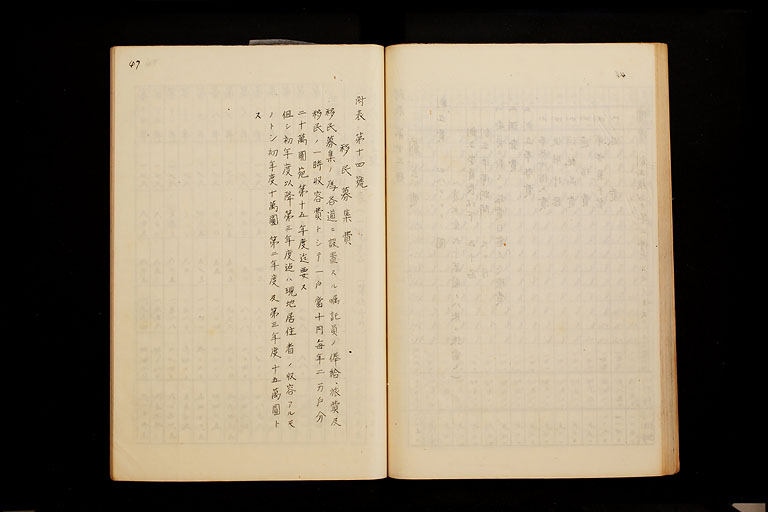 47
附表 第十四號
移民募集費
移民募集ノ爲各道ニ設置スル囑託員ノ俸給、旅費及
移民ノ一時収容費トシテ一戸當十円毎年二万戸分
二十萬圓宛第十五年度迄要ス
但シ初年度以降第三年度迄ハ現地居住者ノ収容アルモ
ノトシ初年度十萬圓 第二年度及第三年度十五萬圓ト
ス